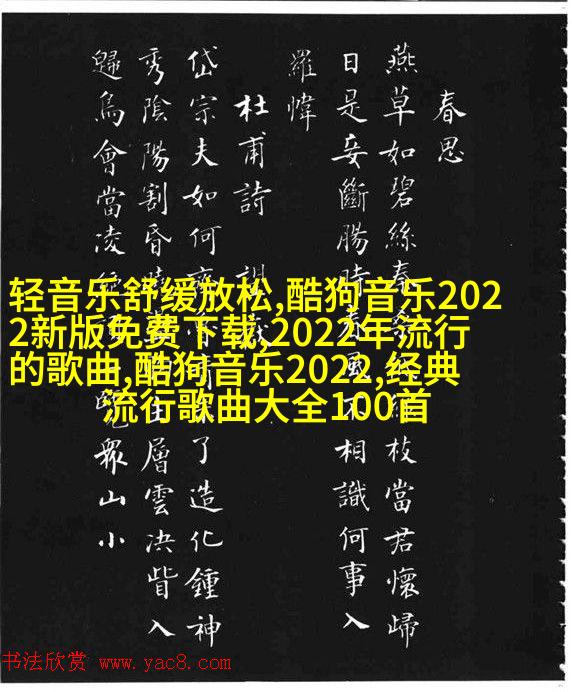 春思
燕草如碧絲枝當君懷歸
日是妾斷腸時春風不相識何事入
羅幃
杜甫詩
岱宗夫如何了造化鍾神
秀陰陽割昏層雲決眥入
歸鳥會當凌眾山小
轻音乐舒缓放松,酷狗音乐202
2新版免费下载,2022年流行
的歌曲,酷狗音乐2022,经典
流行歌曲大全100首
书法欣赏 www.yac8.com